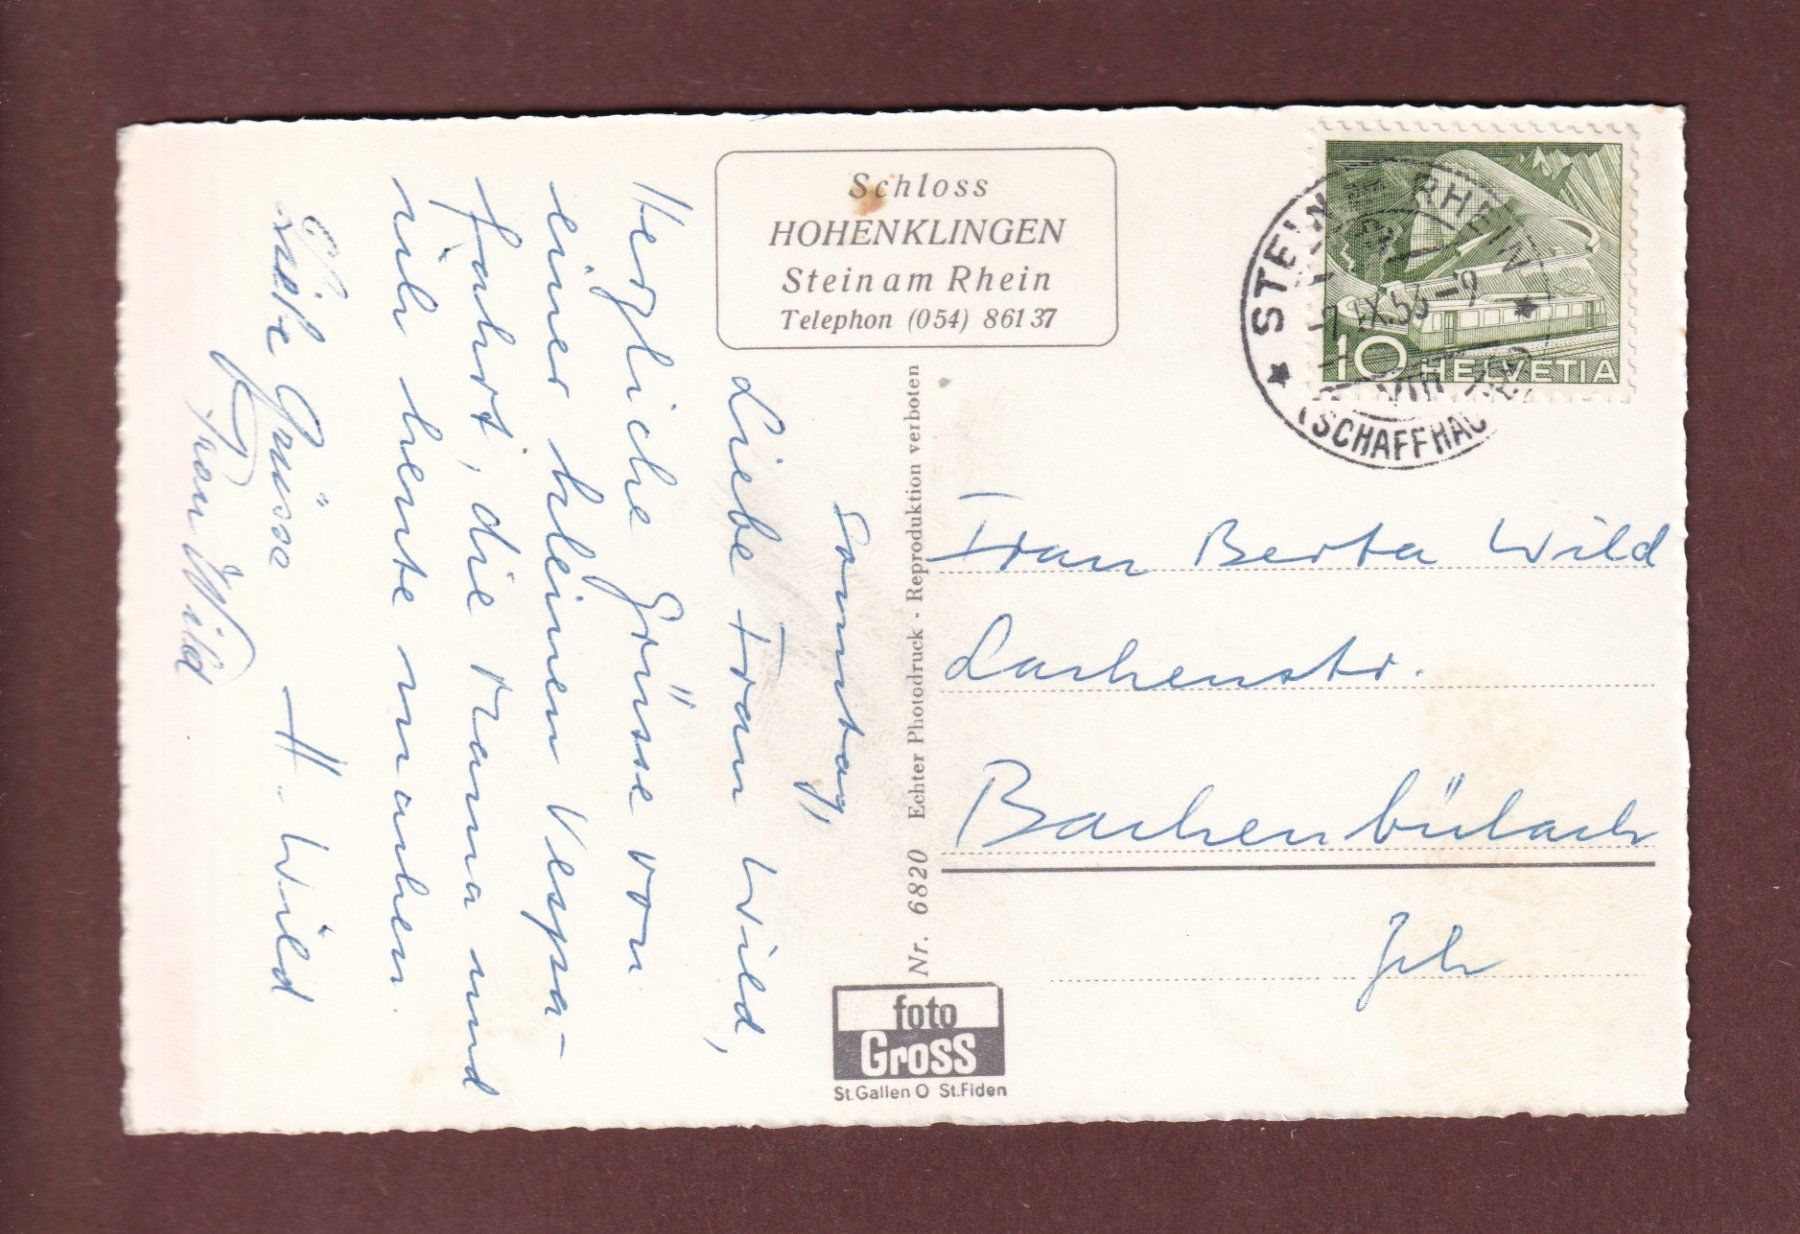 Schloss
HOHENKLINGEN
Stein am Rhein
Telephon (054) 861 37
STEIN A. RHEIN
(SCHAFFHAU
10 HELVETIA
Sonntag,
Liebe Frau Wild,
Herzliche Grüsse von
einer kleinen Vespa-
fahrt, die Mama und
ich heute machen.
Liebe Grüsse H. Wild
Frau Wild
Nr. 6820 Echter Photodruck - Reproduktion verboten
Frau Berta Wild
Lachenstr.
Bachenbülach
Zch
foto
Gross
St.Gallen O St.Fiden